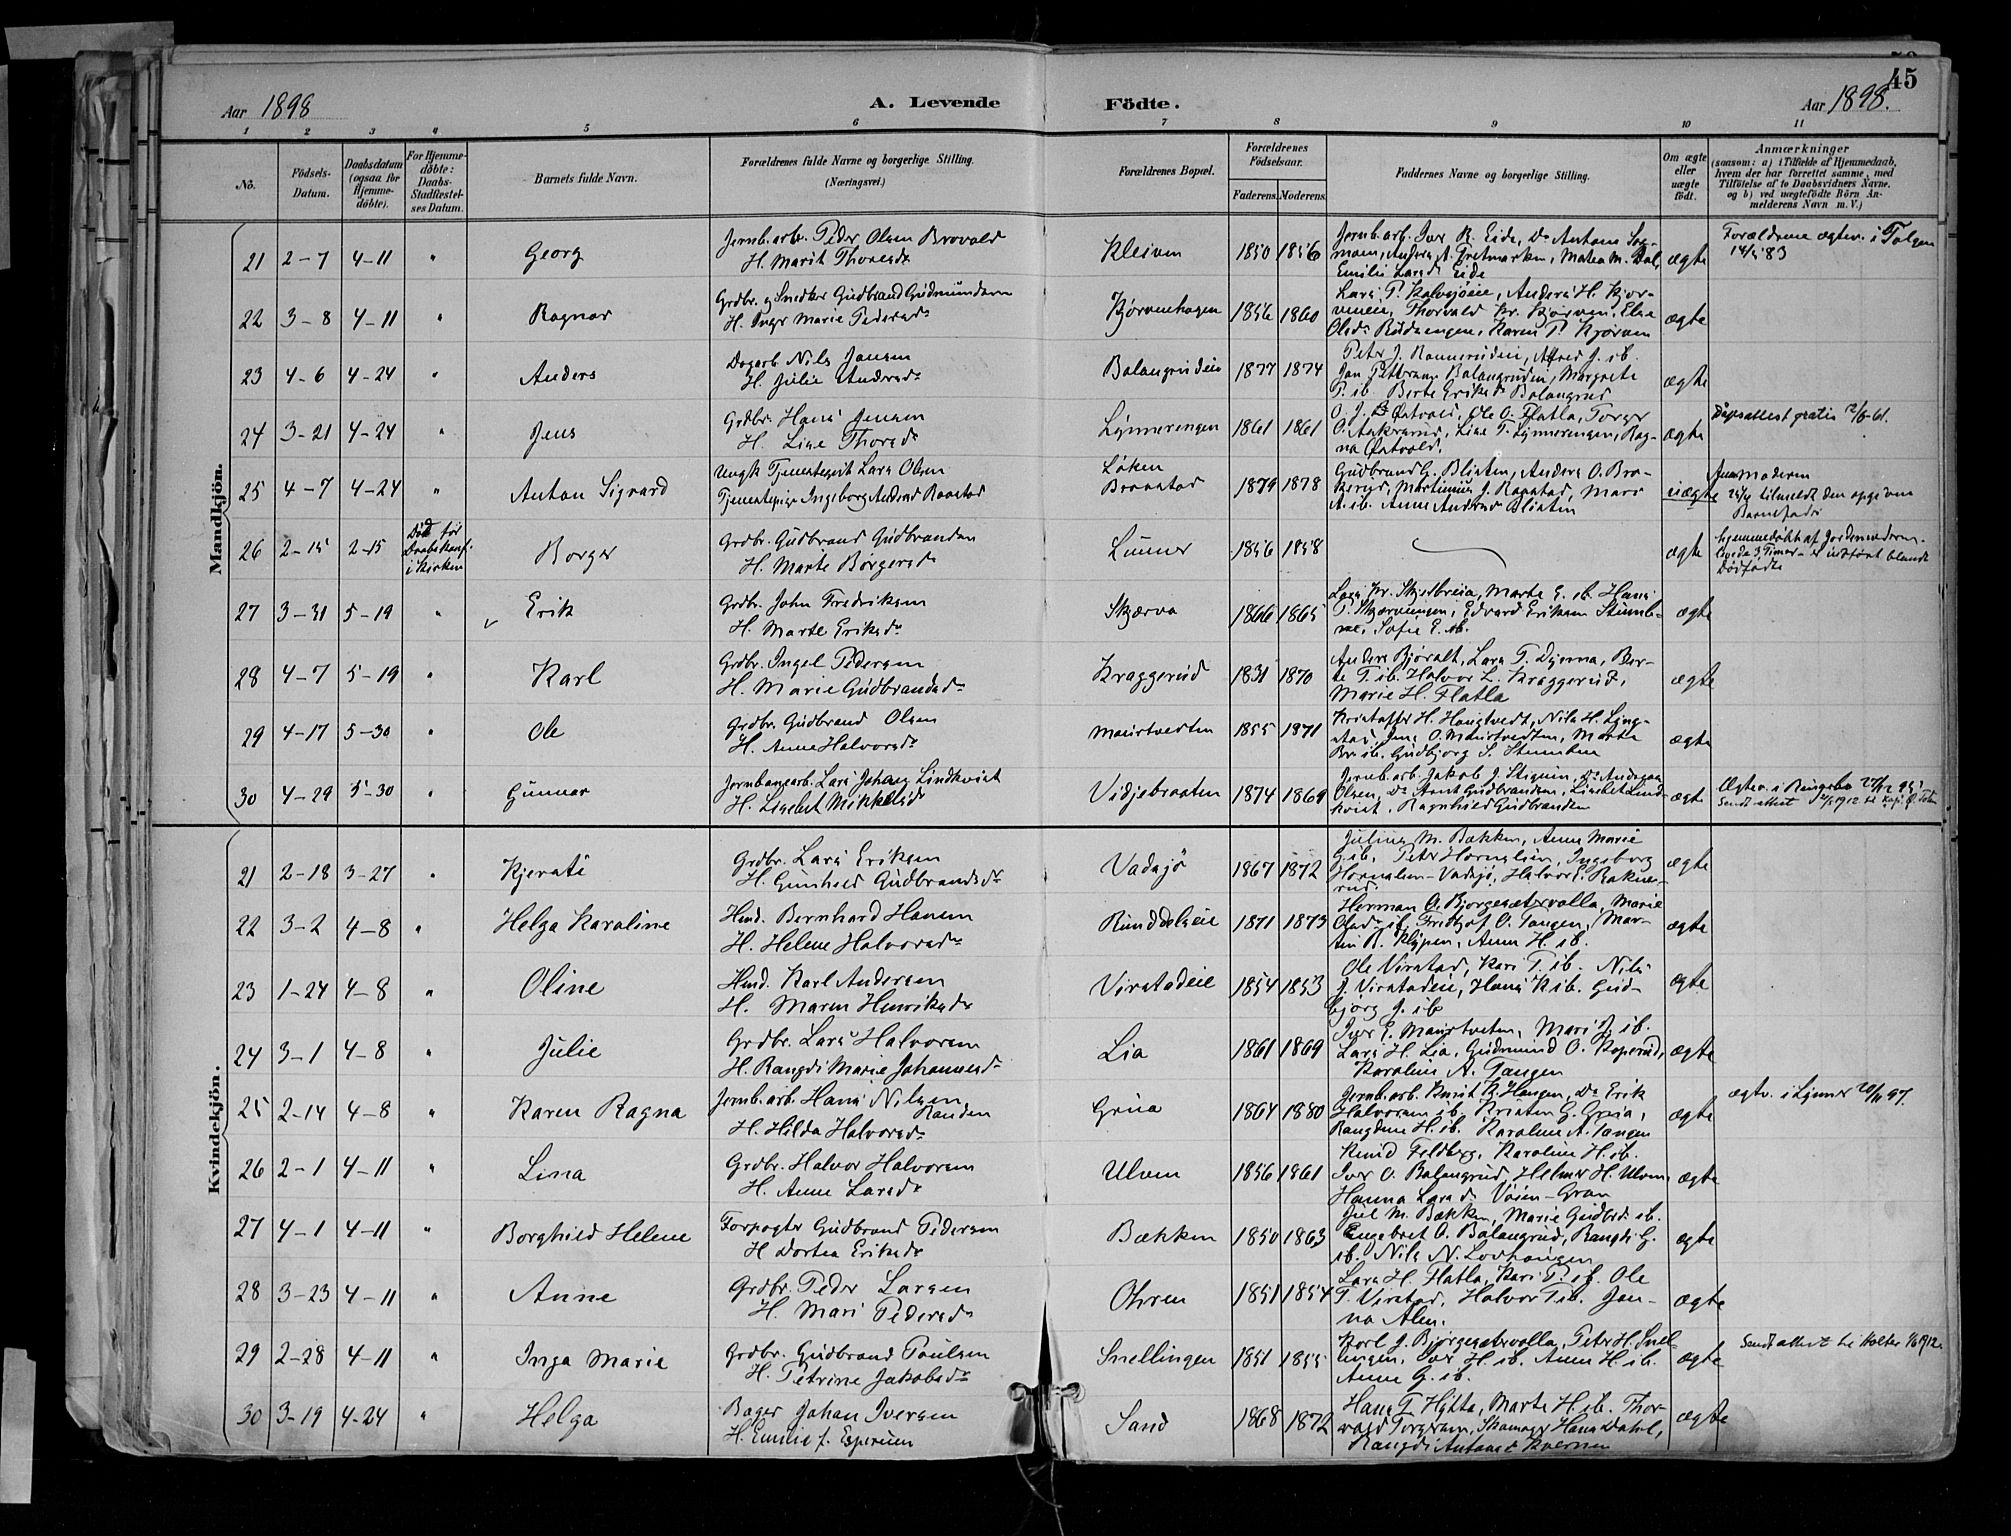 45
Aar 1898
A. Levende
Födte.
Aar 1898.
1 2 3 4 5 6 7 8 9 10 11
No.
Födsels-
Datum.
Daabsdatum
(ogsaa for
Hjemme-
döbte).
For Hjemme-
döbte:
Daabs-
Stadfæstel-
ses Datum.
Barnets fulde Navn.
Forældrenes fulde Navne og borgerlige Stilling.
(Næringsvei.)
Forældrenes Bopæl.
Forældrenes
Födselsaar.
Faderens. Moderens.
Faddernes Navne og borgerlige Stilling.
Om ægte
eller
uægte
födt.
Anmærkninger
(saasom: a) i Tilfælde af Hjemmedaab,
hvem der har forrettet samme, med
Tilföielse af to Daabsvidners Navne,
og b) ved uægtefödte Börn An-
melderens Navn m. V.)
Mandkjön.
21 2-7 4-11 " Georg
Jernb.arb. Peder Olsen Brovold
H. Marit Thoresdr
Kleiven 1850 1856
Jernb.arb. Iver R. Eide, Do Antons
Emilie Larsd. Eide
ægte
Forældrene ægtev. i Tolgen
83
22 3-8 4-11 " Ragnar
Grdbr. og Snedker Gudbrand Gudmundsen
H. Inger Marie Pedersdr
Kjørvenhagen 1856 1860
Lars P. Kalvsjøeie, Anders H. Kjør-
veneie, Thorvald Kr. Kjørven, Else
Olsdr Rudsengen, Karen P. Kjørven
ægte
23 4-6 4-24 " Anders
Dagarb. Nils Jensen
H. Julie Andersdr
Balangrudeie 1877 1874
Jan Pettersen Balangrudeie, Margrete
P. ib. Berte Eriksdr Balangrud
ægte
24 3-21 4-24 " Jens
Grdbr. Hans Jensen
H. Lise Thorsdr
Lynnerengen 1861 1861
Østvold, Ole O. Flatla, Torger
Lise T. Lynnerengen, Rag-
na Østvold.
ægte
Dåpsattest gratis 12/6-61.
25 4-7 4-24 " Anton Sigvard
Ungk. Tjenestegut Lars Olsen
Tjenestepige Ingeborg Andersd Raastad
Løken
1879 1878
Gudbrand G. Blisten, Anders O. Bra-
kerud, Martinius J. Raastad, Mari
A. ib. Anne Andersd Blisten
uægte
Moderen
tilmeldt den opgivne
Barnefader
26 2-15 2-15
Død før
Daabskonf.
i Kirken
Borger
Grdbr. Gudbrand Gudbrandsen
H. Marte Børgersdr
Lunner 1856 1858
ægte
hjemmedøbt af Jordemoderen.
Levde 3 Timer - er indført blandt
Dødfødte
27 3-31 5-19 " Erik
Grdbr. John Fredriksen
H. Marte Eriksdr
Skjærva 1866 1865
Lars Kr. Skjerbreia, Marte E. ib. Hans
P. Skjærvungen, Edvard Eriksen Stumb-
ne, Sofie E. ib.
ægte
28 4-7 5-19 " Karl
Grdbr. Ingel Pedersen
H. Marie Gudbrandsdr
Kraggerud 1831 1870
Anders Bjøralt, Lars T. Dynna, Ber-
te T. ib. Halvor L. Kraggerud,
Marie H. Flatla
ægte
29 4-17 5-30 " Ole
Grdbr. Gudbrand Olsen
H. Anne Halvorsdr
Maurtvedten 1855 1871
Kristoffer H. Haugtvedt, Nils H. Lyng-
stad, Jens O. Maurtvedten, Marte
ib. Gudbjørg S. Stumbne
ægte
30 4-29 5-30 " Gunnar
Jernbanearb. Lars Johans. Lindkvist
H. Lisebet Mikkelsdr
Vidjebraaten 1874 1869
Jernb.arb. Jakob J.
Olsen, Do Arnt Gudbrandsen, Lisebet Lind-
kvist, Ragnhild Gudbrandsen
ægte
Ægtev. i Ringebo 27/12 95
Sendt attest 1912
Kvindekjön.
21 2-18 3-27 " Kjersti
Grdbr. Lars Eriksen
H. Gunhild Gudbrandsdr
Vadsjø 1867 1872
Julius M. Bækken, Anne Marie
G. ib. Peter Hornslien, Ingeborg
Hornslien-Vadsjø, Halvor E. Rakne-
rud.
ægte
22 3-2 4-8 " Helga Karoline
Hmd. Bernhard Hansen
H. Helene Halvorsdr
Runddelseie 1871 1873
Herman O. Bjørgesætervolla, Marie
Olsdr ib. Fredtjof O. Tangen, Mar-
tin R. Klypen, Anne H. ib.
ægte
23 1-24 4-8 " Oline
Hmd. Karl Andersen
H. Maren Henriksdr
Virstadeie 1854 1853
Ole Virstad, Kari T. ib. Nils
J. Virstadeie, Hans K. ib. Gud-
bjørg J. ib
ægte
24 3-1 4-8 " Julie
Grdbr. Lars Halvorsen
H. Rangdi Marie Johannesdr
Lia 1861 1869
Iver E. Maurtveten, Mari J. ib.
Lars H. Lia, Gudmund O. Koperud,
Karoline A. Tangen
ægte
25 2-14 4-8 " Karen Ragna
Jernb.arb. Hans Nilsen
Randen
H. Hilda Halvorsdr
Grua 1864 1880
Jernb.arb. Knut K. Haugen, Do Erik
Halvorsen ib. Kristen G. Grua,
Rangdine H. ib. Karoline A. Tangen
ægte
ægtv. i Lunner 20/11 97.
26 2-1 4-11 " Lina
Grdbr. Halvor Halvorsen
H. Anne Larsdr
Ulven 1856 1861
Knud Feldberg, Karoline H. ib.
Iver O. Balangrud, Helmer H. Ulven,
Hanna Larsd. Vøien-Gran
ægte
27 4-1 4-11 " Borghild Helene
Forpagter Gudbrand Pedersen
H Dortea Eriksdr
Bækken 1850 1863
Juel M. Bækken, Marie Gudbrd. ib.
Engebret O. Balangrud, Rangdi G.
ib. Nils N. Lovhaugen
ægte
28 3-23 4-11 " Anne
Grdbr. Peder Larsen
H. Mari Pedersdr
Ohren 1851 1854
Lars H. Flatla, Kari P. ib. Ole
T. Virstad, Halvor T. ib. Jon-
na Alm.
ægte
29 2-28 4-11 " Inga Marie
Grdbr. Gudbrand Poulsen
H. Petrine Jakobsdr
Snellingen 1851 1855
Karl J. Bjørgesætervolla, Peter H. Snel-
lingen, Iver H. ib. Anne H. ib.
Anne G. ib.
ægte
Sendt attest til Holter 1912.
30 3-19 4-24 " Helga
Bager Johan Iversen
H. Emilie f. Espersen
Sand 1868 1872
Hans T. Hytta, Marte H. ib. Thor-
vald Torgersen, Skomager Hans Dahl,
Rangdi Antonsd. Kværnen
ægte